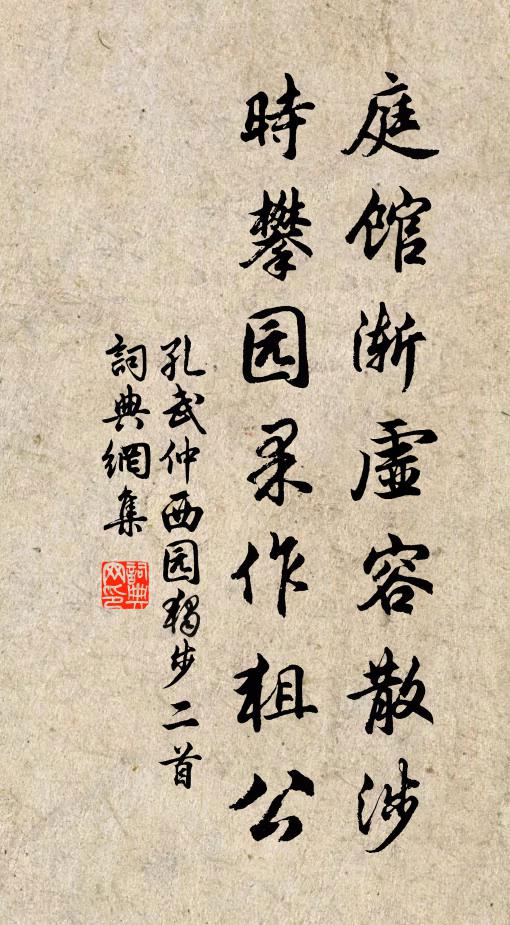 庭馆渐虚容散涉
时攀园果作狙公
孔武仲西园独步二首
词典网集
詞典网印